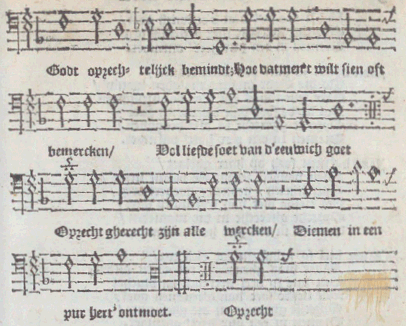 Godt oprech- telijck bemindt; Hoe datmen't wilt sien oft
bemercken/ Vol liefde soet van d'eeuwich goet
Oprecht gherecht zijn alle wercken/ Diemen in een
pur hert' ontmoet. Oprecht